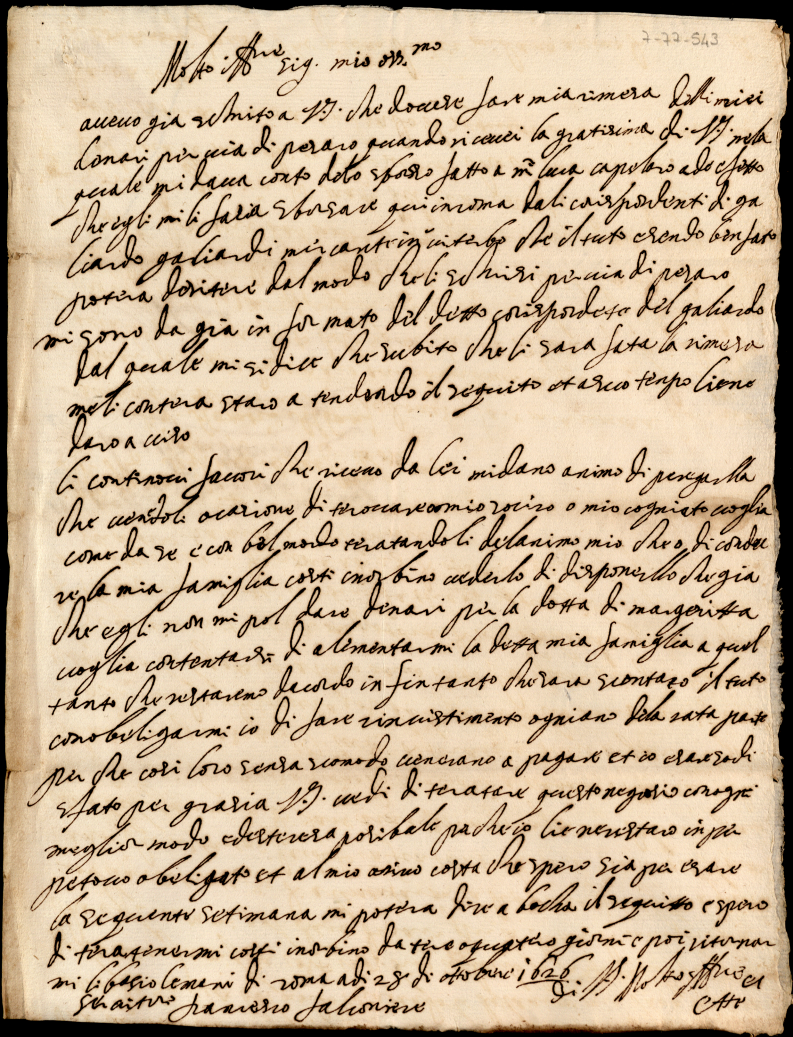 7-77-543
Molto Ill.re Sig. mio oss.mo
avevo gia schrito a V.S. che dovese fare mia rimesa delli miei
denari per via di pesaro quando ricevei la gratisima di V.S. nela
quale mi dava conto delo sborso fatto a m. luca capelaro
che egli mi li faria sborsare qui in roma dali corispondenti di ga
liardo galiardi mircante in viterbo che il tuto esendo ben fato
potera desistere dal modo che li schrisi per via di pesaro
mi sono da gia in for mato del detto corispondete del galiardo
dal quale mi si dice che subito che li sara fata la rimesa
me li contera staro a tendendo il seguito et a suo tenpo liene
daro a viso
li continovi favori che ricevo da lei mi dano animo di pregarlla
che venendoli ocasione di terovare mio socero o mio cogniato voglia
come da se e con bel modo teratandoli delanimo mio che o di condu
re la mia famiglia costi in orbino vederlo di disponerllo che gia
che egli non mi pol dare denari per la dotta di margeritta
voglia contentarsi di alimentarmi la detta mia famiglia a quel
tanto che restaremo dacordo in fin tanto che sara scontato il tuto
con obeligarmi io di fare rinvistimento ogniano dela rata parte
per che cosi loro senza scomodo venerano a pagare et io
sfato per grasia V.S. vedi di teratare questo negosio con ogni
meglior modo e desteresa posibale per che io liene restaro in per
petovo obeligato et al mio arivo costa che spero sia per esare
la seguente setimana mi potera dire a bocha il seguito e spero
di teratenermi costi in orbino da tere o quatero giorni e poi ritornar
mi li bascio le mani di roma adi 28 di ottobere 1626
di V.S. Molto Ill.re et
servitore francesco falconiere